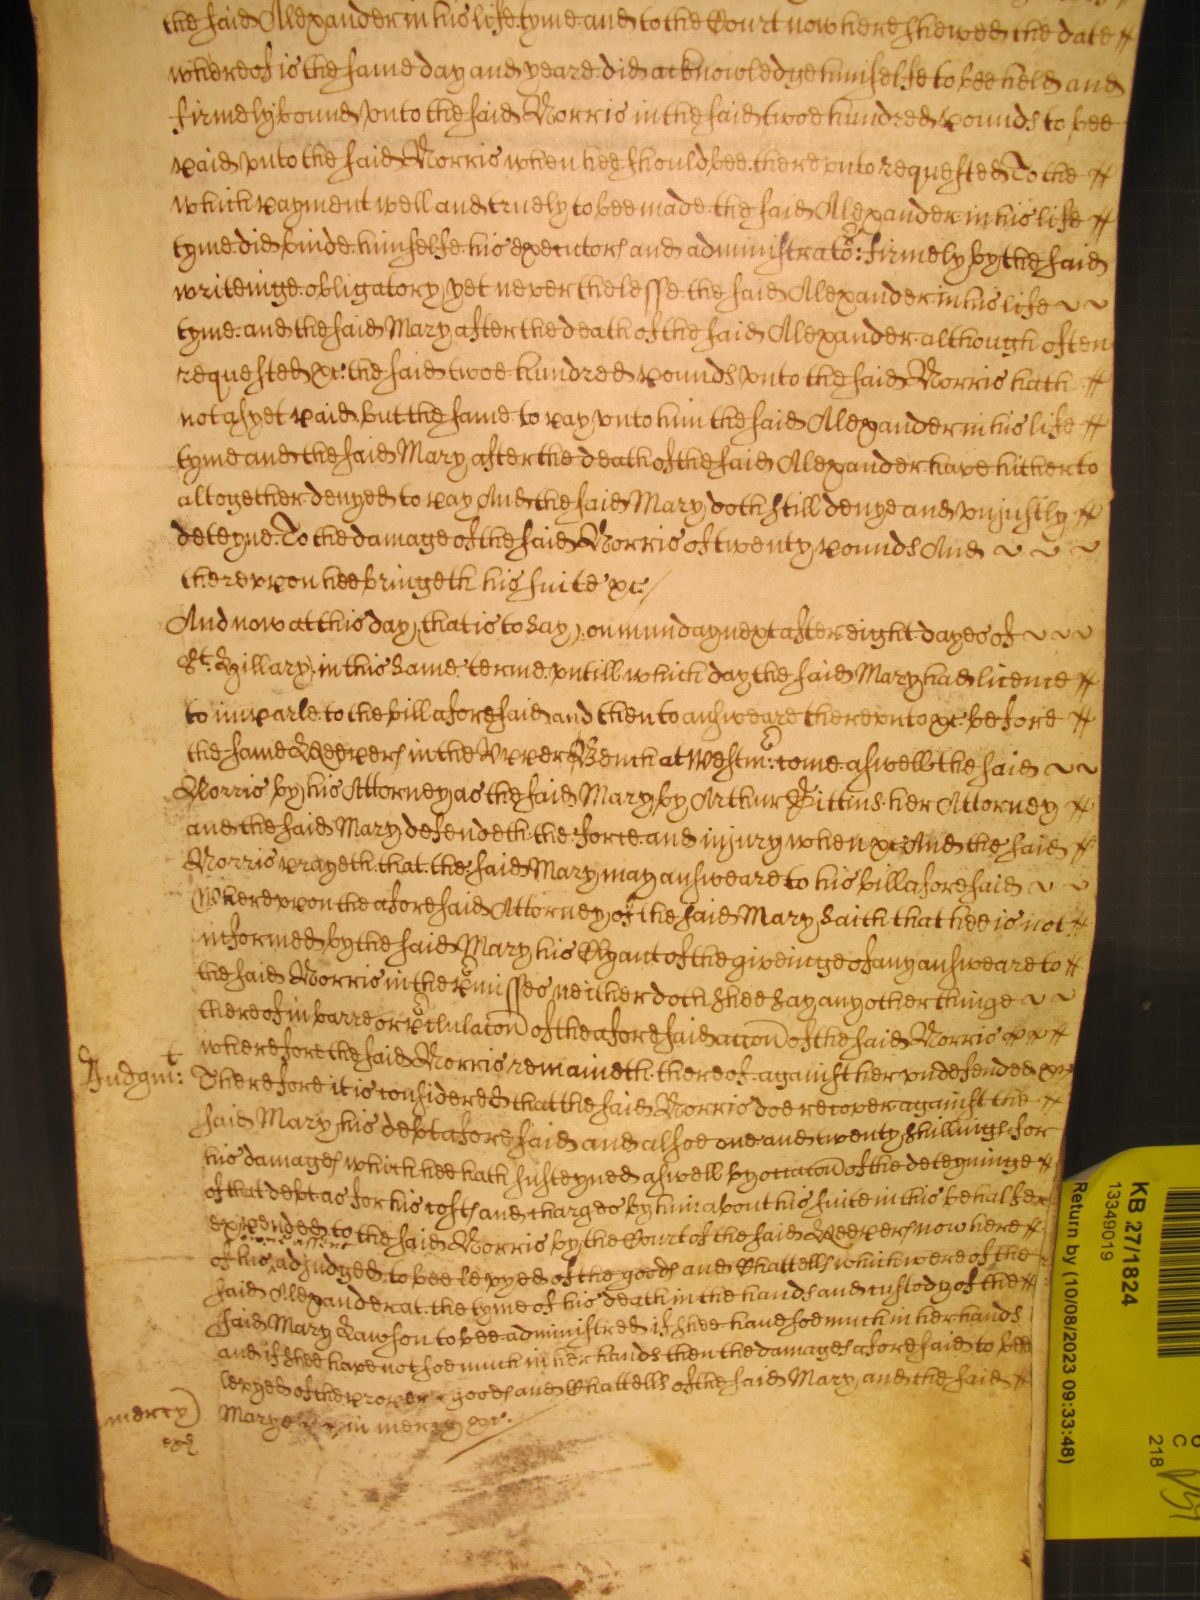 the said Alexander in his life tyme and to the Court now here shewed the date
whereof is the same day and yeare did acknowledge himselfe to bee held and
firmely bound unto the said Norris in the said twoe hundred pounds to bee
paid unto the said Norris when hee should bee thereunto requested To the
which payment well and truely to bee made the said Alexander in his life
tyme did binde himselfe his executors and administrato:rs firmely by the said
writeinge obligatory yet neverthelesse the said Alexander in his life
tyme and the said Mary after the death of the said Alexander although often
requested &c: the said twoe hundred pounds unto the said Norris hath
not as yet paid but the same to pay unto him the said Alexander in his life
tyme and the said Mary after the death of the said Alexander have hitherto
altogether denyed to pay And the said Mary doth still denye and unjustly
deteyne To the damage of the said Norris of twenty pounds And
thereupon hee bringeth his suite &c:/
And now at this day, that is to say, on munday next after eight dayes of
St. Hillary in this same terme untill which day the said Mary had licence
to imparle to the bill aforesaid and then to answeare thereunto &c before
the same Keepers in the Upper Bench at Westm:r come aswell the said
Norris by his Attorney as the said Mary by Arthur Pittus her Attorney
and the said Mary defendeth the force and injury when &c And the said
Norris prayeth that the said Mary may answeare to his bill aforesaid
Whereupon the aforesaid Attorney of the said Mary saith that hee is not
informed by the said Mary his Clyant of the giveinge of any answeare to
the said Norris in the p'misses neither doth shee say any other thinge
thereof in barre or p'clulacon of the aforesaid accon of the said Norris
wherefore the said Norris remaineth thereof against her undefended &c
Judgmt: Therefore it is considered that the said Norris doe recover against the
said Mary his debt aforesaid and alsoe one and twenty shillings for
his damages which hee hath susteyned aswell by occacon of the deteyninge
of that debt as for his costs and charges by him about his suite in this behalfe
expended to the said Norris by the Court of the said Keepers now here
of his assent adjudged to bee levyed of the goods and Chattells which were of the
said Alexander at the tyme of his death in the hands and custody of the
said Mary Lawson to bee administred if shee have soe much in her hands
and if shee have not soe much in her hands then the damages aforesaid to bee
levyed of the proper goods and Chattells of the said Mary, and the said
mercy Mary in mercy &c.
KB 27/1824
13349019
Return by (10/08/2023 09:33:48)
C
218